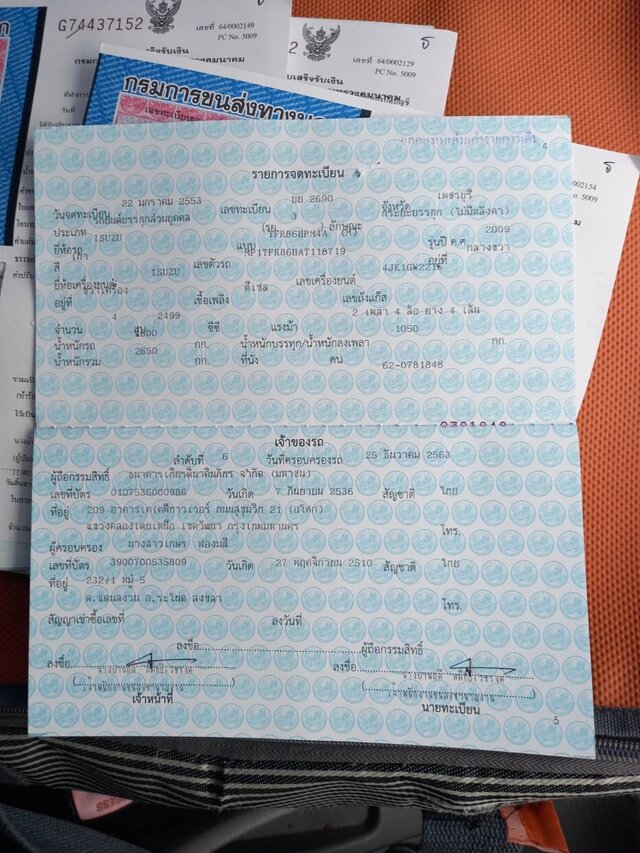 G74437152
เลขที่ 64/0002149
PC No. 5009
เลขที่ 64/0002129
PC No. 5009
กรมการขนส่งทางบก
4
รายการจดทะเบียน
วันจดทะเบียน 22 มกราคม 2553 เลขทะเบียน บย 2690 จังหวัด เพชรบุรี
ประเภท รถยนต์บรรทุกส่วนบุคคล (รย. 3 ) ลักษณะ กระบะบรรทุก (ไม่มีหลังคา)
ยี่ห้อรถ ISUZU แบบ TFR86HPM4A (M) รุ่นปี ค.ศ. 2009
สี เทา เลขตัวรถ MP1TFR86HAT118719 อยู่ที่ กลางขวา
ยี่ห้อเครื่องยนต์ ISUZU เลขเครื่องยนต์
อยู่ที่ เชื้อเพลิง ดีเซล เลขถังแก๊ส
จำนวน 4 สูบ 2499 ซีซี แรงม้า 2 เพลา 4 ล้อ ยาง 4 เส้น
น้ำหนักรถ กก. น้ำหนักบรรทุก/น้ำหนักลงเพลา 1050 กก.
น้ำหนักรวม 2650 กก. ที่นั่ง คน 62-0781848
เจ้าของรถ
ลำดับที่ 6 วันที่ครอบครองรถ 25 ธันวาคม 2563
ผู้ถือกรรมสิทธิ์ ธนาคารเกียรตินาคินภัทร จำกัด (มหาชน)
เลขที่บัตร 0107536000986 วันเกิด 7 กันยายน 2536 สัญชาติ ไทย
ที่อยู่ 209 อาคารเคเคพีทาวเวอร์ ถนนสุขุมวิท 21 (อโศก)
แขวงคลองเตยเหนือ เขตวัฒนา กรุงเทพมหานคร โทร.
ผู้ครอบครอง นางสาวเกษร ฟองมณี
เลขที่บัตร 3900700535809 วันเกิด 27 พฤศจิกายน 2510 สัญชาติ ไทย
ที่อยู่ 232/1 หมู่ 5
ต.แดนสงวน อ.ระโนด สงขลา โทร.
สัญญาเช่าซื้อเลขที่ ลงวันที่
ลงชื่อ ผู้ถือกรรมสิทธิ์
ลงชื่อ ลงชื่อ
เจ้าหน้าที่ นายทะเบียน
5